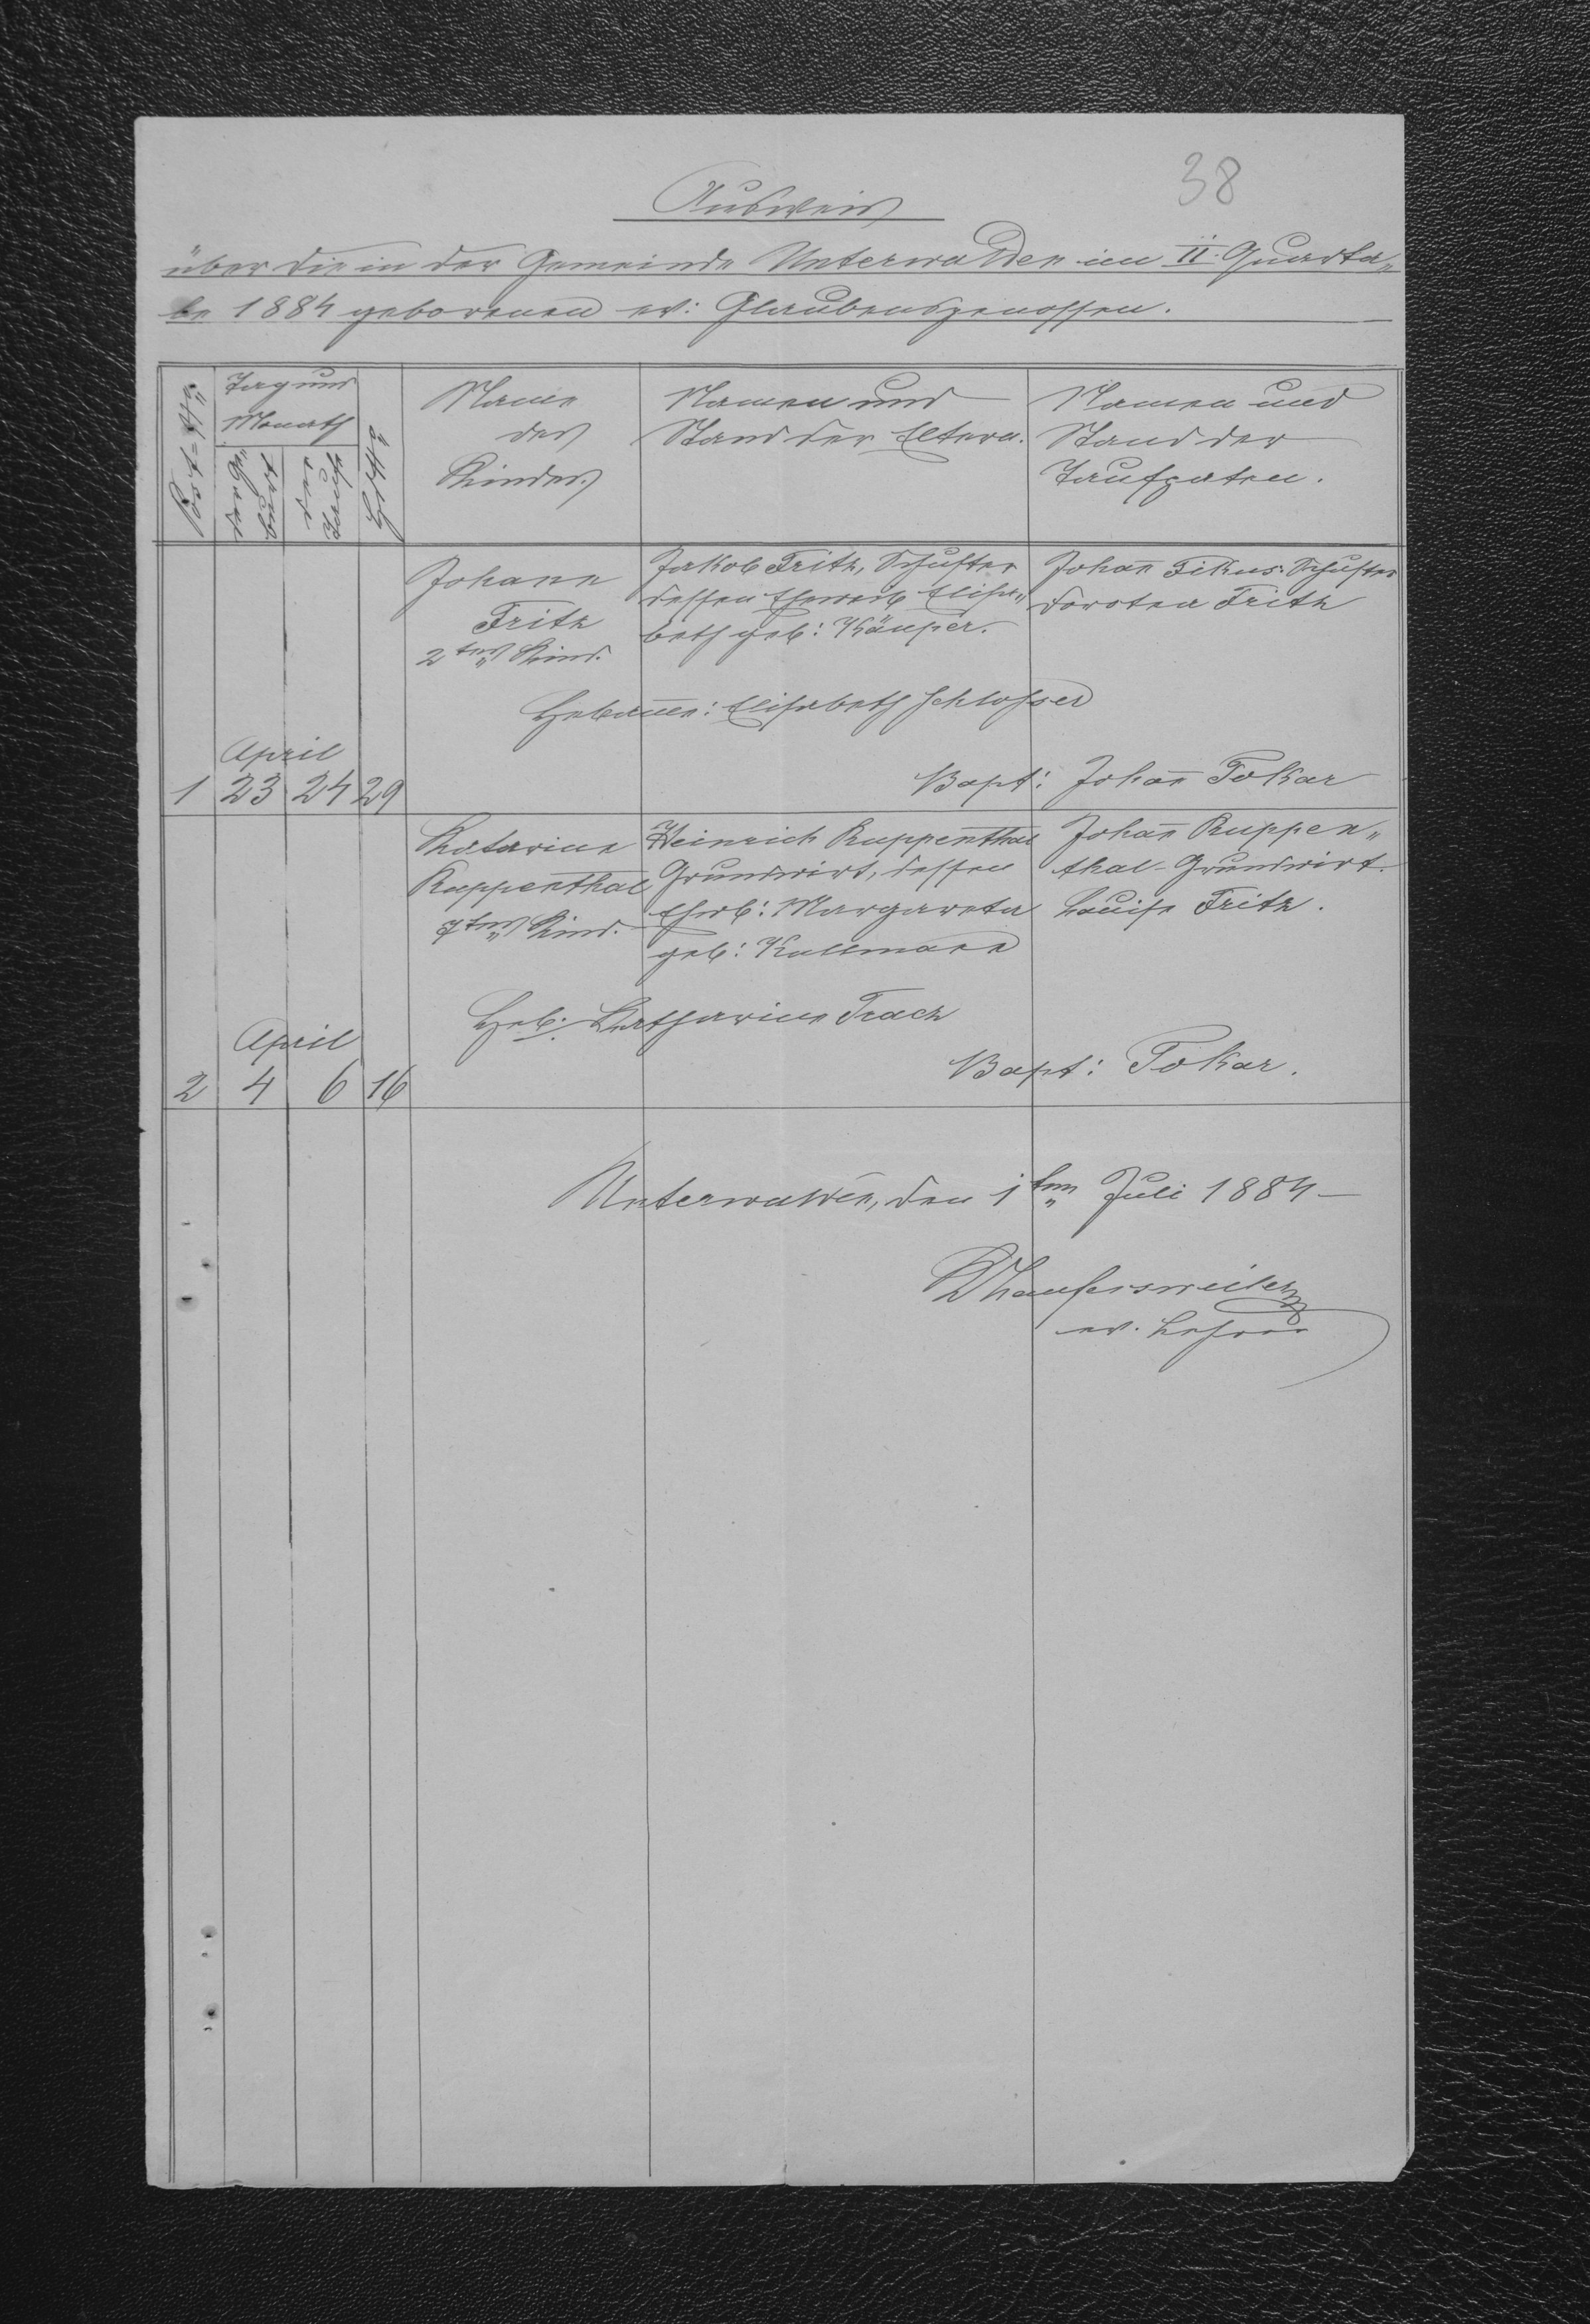 38
Ausweis
über die in der Gemeinde Unterwalden im II. Quarta„
le 1884 geborenen ev: Glaubensgenossen.
Post-№
Tag und
Monath
der Ge„
burt
der
Taufe
Hs №
Name
des
Kindes.
Namen und
Stand der Eltern.
Namen und
Stand der
Taufpaten.
Johann
Fritz
2tes Kind.
Jakob Fritz, Schuster
dessen Eheweib Elisa„
beth geb: Känper.
Johan̄ Fikus Schuster
Dorotea Fritz
Hebam̄e: Elisabeth Schlosser
Bapt: Johan̄ Tokar
April
1 23 24 29
Katarina
Ruppenthal
7tes Kind.
Heinrich Ruppenthal
Grundwirt, dessen
Ehwb: Margareta
geb: Kullmann
Johan̄ Ruppen„
thal Grundwirt.
Louise Fritz.
Heb: Katharina Trach
Bapt: Tokar.
April
2 4 6 16
Unterwalden, den 1ten Juli 1884
ev. Lehrer